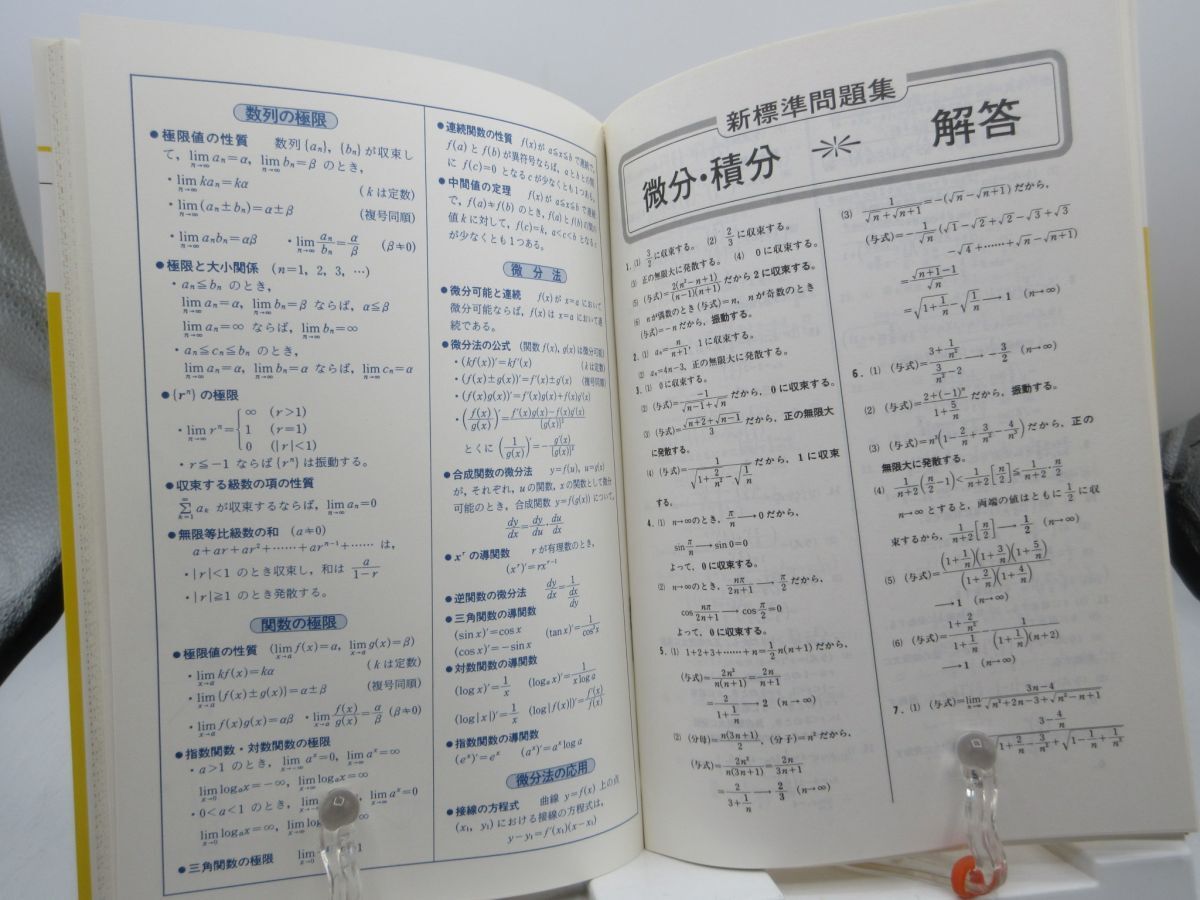 数列の極限
●極限値の性質　数列{aₙ}, {bₙ}が収束し
て, lim aₙ=α, lim bₙ=β のとき,
・lim kaₙ=kα　(kは定数)
・lim(aₙ±bₙ)=α±β　(複号同順)
・lim aₙbₙ=αβ　・lim aₙ/bₙ=α/β　(β≠0)
●極限と大小関係　(n=1, 2, 3, …)
・aₙ≦bₙ のとき,
lim aₙ=α, lim bₙ=β ならば, α≦β
lim aₙ=∞ ならば, lim bₙ=∞
・aₙ≦cₙ≦bₙ のとき,
lim aₙ=α, lim bₙ=α ならば, lim cₙ=α
●{rⁿ}の極限
・lim rⁿ= ∞ (r>1)
1 (r=1)
0 (|r|<1)
・r≦−1 ならば{rⁿ}は振動する。
●収束する級数の項の性質
Σaₖ が収束するならば, lim aₙ=0
●無限等比級数の和　(a≠0)
a+ar+ar²+……+arⁿ⁻¹+…… は,
・|r|<1 のとき収束し, 和は a/(1−r)
・|r|≧1 のとき発散する。
関数の極限
●極限値の性質　(lim f(x)=α, lim g(x)=β)
・lim kf(x)=kα　(kは定数)
・lim{f(x)±g(x)}=α±β　(複号同順)
・lim f(x)g(x)=αβ　・lim f(x)/g(x)=α/β (β≠0)
●指数関数・対数関数の極限
・a>1 のとき, lim aˣ=0, lim aˣ=∞
lim logₐx=−∞, lim logₐx=∞
・0<a<1 のとき, lim lim aˣ=0
lim logₐx=∞, lim logₐx
●三角関数の極限　lim
●連続関数の性質　f(x)が a≦x≦b で連続で,
f(a)とf(b)が異符号ならば, aとbとの間
に f(c)=0 となるcが少なくとも1つある。
●中間値の定理　f(x)が a≦x≦b で連続
で, f(a)≠f(b) のとき, f(a)とf(b)の間の
値kに対して, f(c)=k, a<c<b となるc
が少なくとも1つある。
微分法
●微分可能と連続　f(x)が x=a において
微分可能ならば, f(x)は x=a において連
続である。
●微分法の公式　(関数f(x), g(x)は微分可能)
・(kf(x))′=kf′(x)　(kは定数)
・(f(x)±g(x))′=f′(x)±g′(x)　(複号同順)
・(f(x)g(x))′=f′(x)g(x)+f(x)g′(x)
・(f(x)/g(x))′=(f′(x)g(x)−f(x)g′(x))/{g(x)}²
とくに (1/g(x))′=−g′(x)/{g(x)}²
●合成関数の微分法　y=f(u), u=g(x)
が, それぞれ, uの関数, xの関数として微分
可能のとき, 合成関数 y=f(g(x))について,
dy/dx=dy/du・du/dx
●xʳ の導関数　rが有理数のとき,
(xʳ)′=rxʳ⁻¹
●逆関数の微分法　dy/dx=1/(dx/dy)
●三角関数の導関数
(sin x)′=cos x　(tan x)′=1/cos²x
(cos x)′=−sin x
●対数関数の導関数
(log x)′=1/x　(logₐx)′=1/(x log a)
(log|x|)′=1/x　(log|f(x)|)′=f′(x)/f(x)
●指数関数の導関数
(eˣ)′=eˣ　(aˣ)′=aˣ log a
微分法の応用
●接線の方程式　曲線 y=f(x) 上の点
(x₁, y₁)における接線の方程式は,
y−y₁=f′(x₁)(x−x₁)
新標準問題集
微分・積分 解答
1. (1) 3/2 に収束する。 (2) 2/3 に収束する。
(3) 正の無限大に発散する。 (4) 0に収束する。
(5) (与式)=2(n²−n+1)/((n−1)(n+1)) だから2に収束する。
(6) nが偶数のとき(与式)=n, nが奇数のとき
(与式)=−n だから, 振動する。
2. (1) aₙ=n/(n+1), 1に収束する。
(2) aₙ=4n−3, 正の無限大に発散する。
3. (1) 0に収束する。
(2) (与式)=−1/(√(n−1)+√n) だから, 0に収束する。
(3) (与式)=(√(n+2)+√(n−1))/3 だから, 正の無限大
に発散する。
(4) (与式)=1/(√(1+2/n²)−√(1/n)) だから, 1に収束
する。
4. (1) n→∞のとき, π/n→0だから,
sin π/n→sin 0=0
よって, 0に収束する。
(2) n→∞のとき, nπ/(2n+1)→π/2 だから,
cos nπ/(2n+1)→cos π/2=0
よって, 0に収束する。
5. (1) 1+2+3+……+n=1/2 n(n+1) だから,
(与式)=2n²/(n(n+1))=2n/(n+1)
=2/(1+1/n)→2 (n→∞)
(2) (分母)=n(3n+1)/2, (分子)=n² だから,
(与式)=2n²/(n(3n+1))=2n/(3n+1)
=2/(3+1/n)→2/3 (n→∞)
(3) 1/(√n+√(n+1))=−(√n−√(n+1)) だから,
(与式)=−1/√n (√1−√2+√2−√3+√3
−√4+……+√n−√(n+1))
=(√(n+1)−1)/√n
=√(1+1/n)−√(1/n)→1 (n→∞)
6. (1) (与式)=(3+1/n²)/(3/n²−2)→−3/2 (n→∞)
(2) (与式)=(2+(−1)ⁿ)/(1+5/n) だから, 振動する。
(3) (与式)=n³(1−2/n+3/n²−4/n³) だから, 正の
無限大に発散する。
(4) 1/(n+2)(n/2−1)<1/(n+2)[n/2]≦1/(n+2)・n/2
n→∞とすると, 両端の値はともに 1/2 に収
束するから, 1/(n+2)[n/2]→1/2 (n→∞)
(5) (与式)=(1+1/n)(1+3/n)(1+5/n)/((1+2/n)(1+4/n))
→1 (n→∞)
(6) (与式)=(1+2/n²)/(1+1/n)−1/((1+1/n)(n+2))
→1 (n→∞)
7. (1) (与式)=lim (3n−4)/(√(n²+2n−3)+√(n²−n+1))
(3−4/n)/(√(1+2/n−3/n²)+√(1−1/n+1/n²))